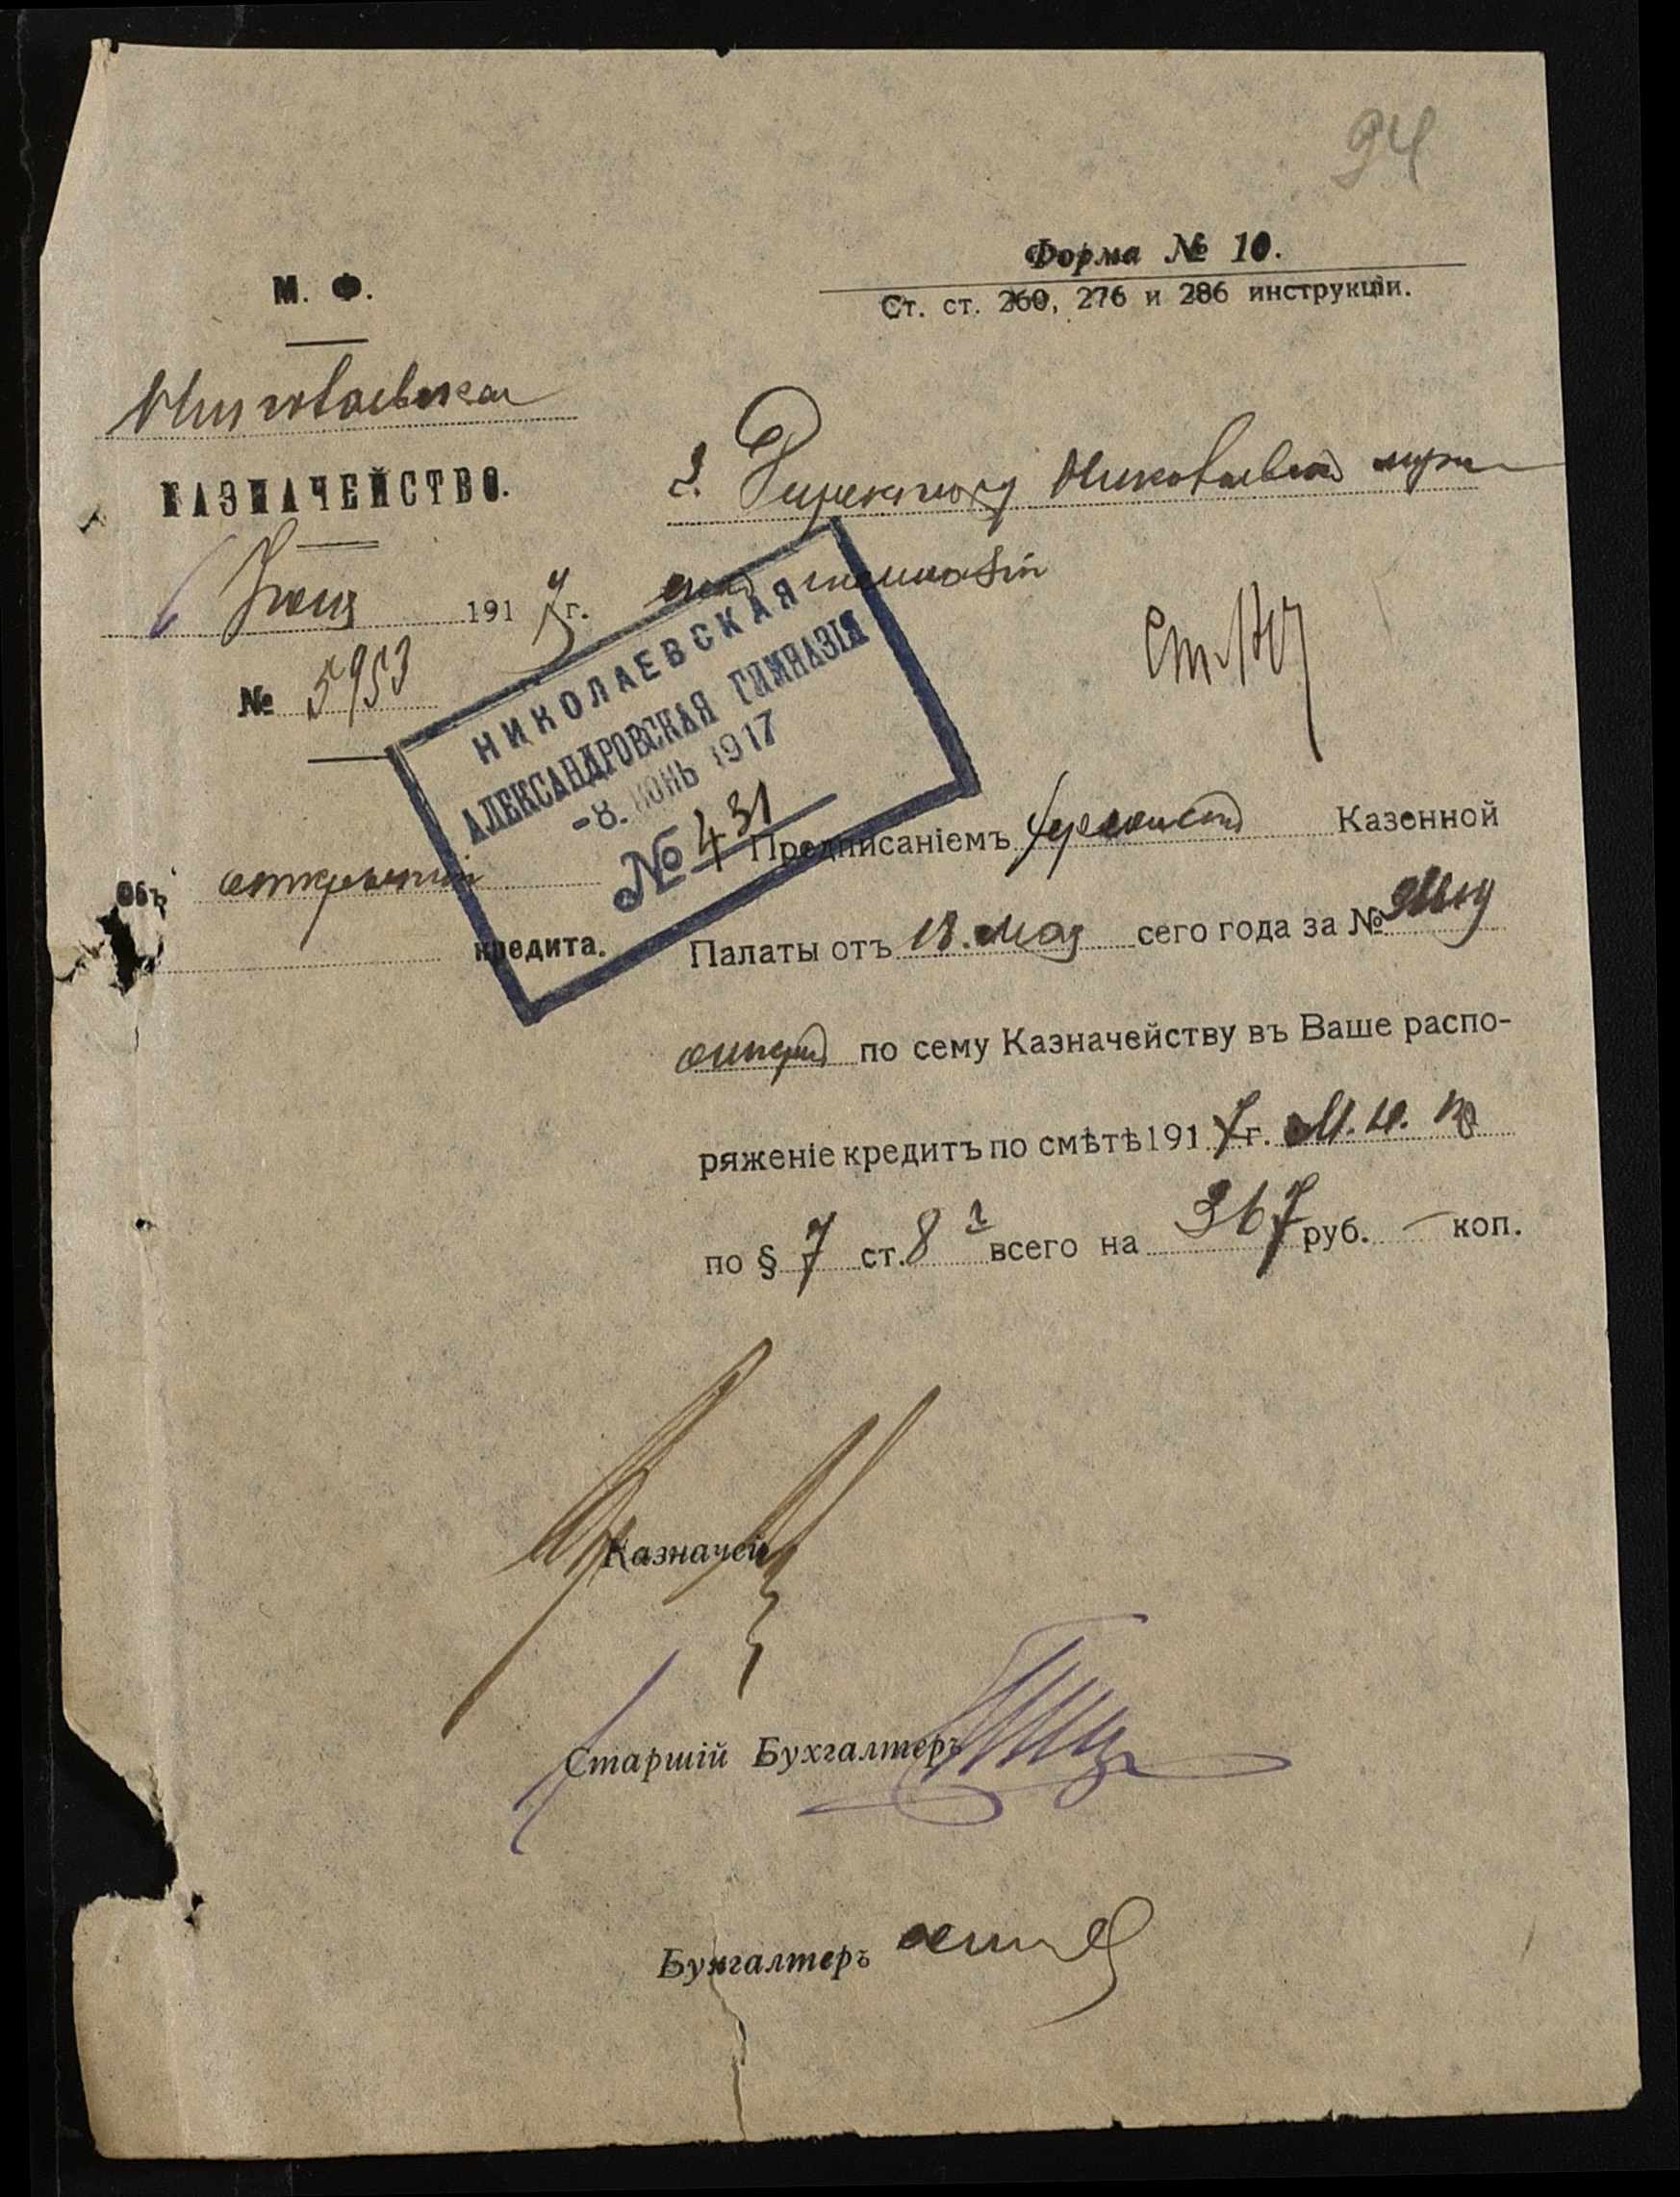 94
Форма № 10.
Ст. ст. 260, 276 и 286 инструкціи.
М. Ф.
Николаевское
КАЗНАЧЕЙСТВО.
6 Іюня 1917 г.
№ 5953
Г. Директору Николаевской муж
ской гимназіи
НИКОЛАЕВСКАЯ
АЛЕКСАНДРОВСКАЯ ГИМНАЗІЯ
-8. ІЮНЬ 1917
№ 431
Объ открытіи
кредита.
Предписаніемъ Херсонской Казенной
Палаты отъ 18. Мая сего года за №
открытъ по сему Казначейству въ Ваше распо-
ряженіе кредитъ по смѣтѣ 1917 г. М. Н. Пр
по § 7 ст. 8 всего на 367 руб. — коп.
Казначей
Старшій Бухгалтеръ
Бухгалтеръ